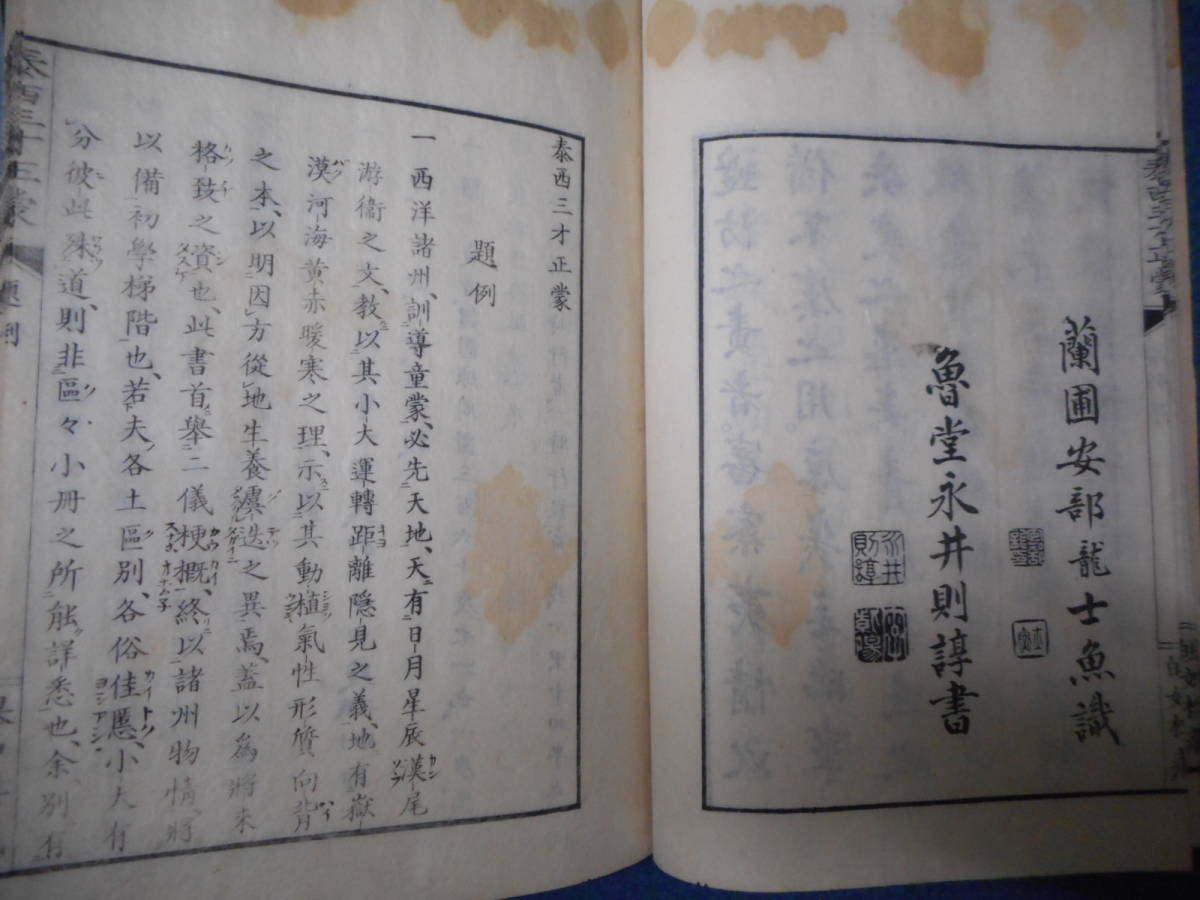 蘭圃安部龍士魚識
魯堂永井則諄書
泰西三才正蒙
題例
一 西洋諸州、訓導童蒙、必先天地、天有日月星辰漢尾
游衞之文、教以其小大運轉距離隠見之義、地有嶽
漠河海黄赤暖寒之理、示以其動植氣性形質向背
之本、以明因方從地生養虞迭之異焉、蓋以為將来
格致之資也、此書首舉二儀梗概、終以諸州物情、將
以備初學梯階也、若夫各土區別、各俗佳慝、小大有
分彼此殊道、則非區々小冊之所能詳悉也、余別有